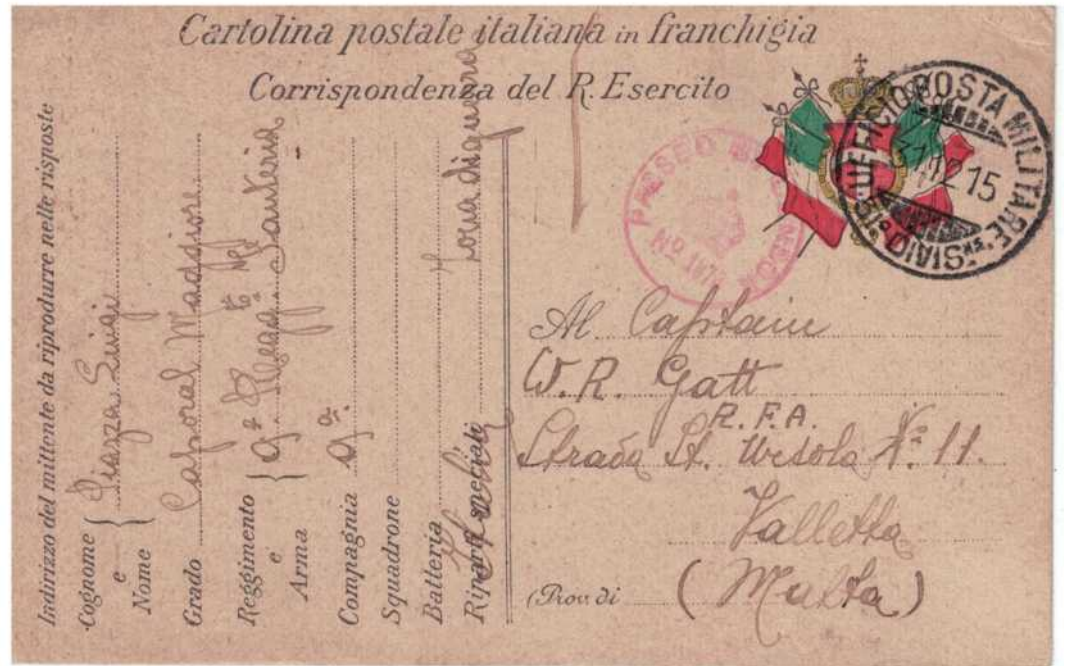 Cartolina postale italiana in franchigia
Corrispondenza del R. Esercito
Indirizzo del mittente da riprodurre nelle risposte
Cognome e Nome { Piazza Luigi
Grado Caporal Maggiore
Reggimento e Arma { Regg. Fanteria
Compagnia 9a
Squadrone
Batteria Zona di guerra
Riparti speciali Italia
UFFICIO POSTA MILITARE
12 15
PASSED
No
Al Captain
W. R. Gatt
R.F.A.
Strada St. Ursola No. 11.
Valletta
(Prov. di (Malta)